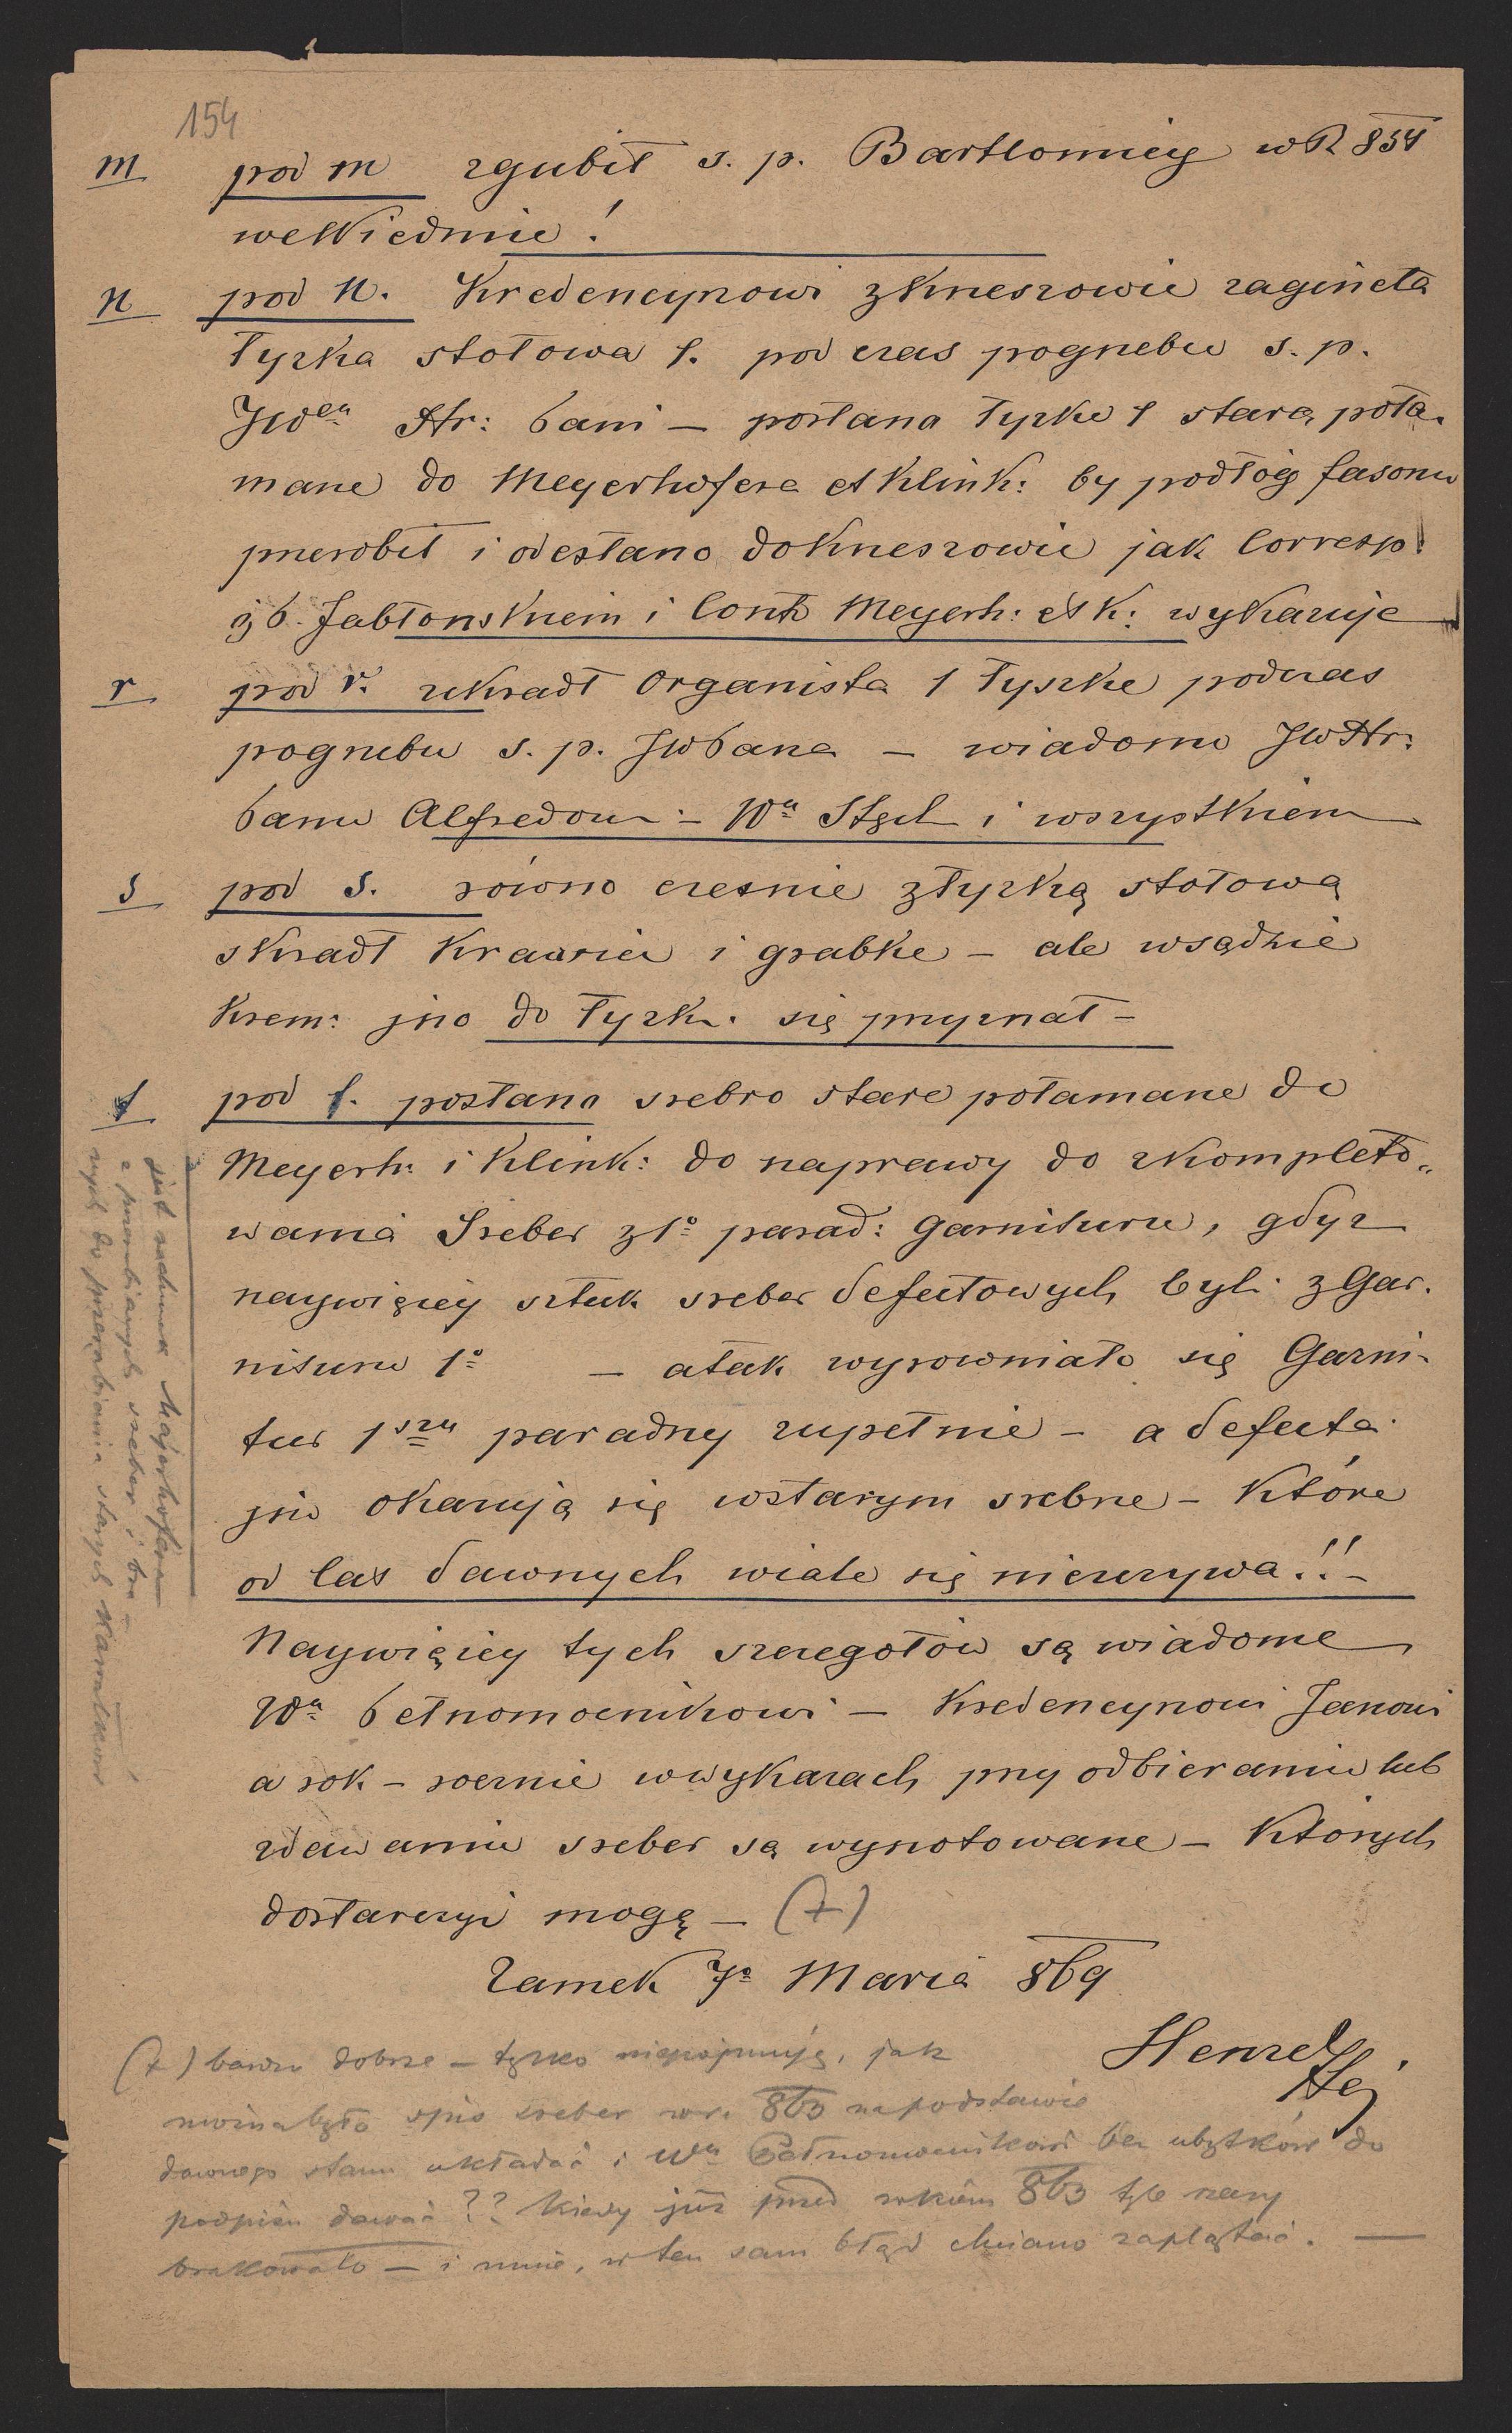 154
m pod m zgubił s. p. Bartłomiey w R 854
we Wiedniu!
n pod n. Kredencyrowi z Krzeszowic zagineła
łyzka stołowa 1. pod czas pogrzebu s. p.
JWen Hr: Pani – posłano łyzke 1 stara poła-
mane do Meyerhofera et Klink: by podłóg fasonu
przerobił i odesłano do Krzeszowic jak Corresp:
z P. Jabłonskiem i Cont Meyerh: et K: wykazuje
r pod r. ukradł Organista 1 łyszke podczas
pogrzebu s. p. JW Pana – wiadomo JW Hr:
Panu Alfredowi – Wu Stgel i wszystkiem
s pod s. równo czesnie z łyzką stołową
skradł Krawiec i grabke – ale w sądzie
Krem: jno do łyzk. się przyznał –
t pod t. posłano srebro stare połamane do
Meyerh: i Klink: do naprawy do zkompleto-
wania Sreber z 1o parad: garnituru, gdyz
naywięcey sztuk sreber defectowych byli z Gar-
nituru 1o – a tak wyrowniało się Garni-
tur 1szy paradny zupełnie – a defecta
jno okazują się w starym srebrze – które
od las dawnych wiale się nieuzywa!! –
Naywięcey tych szczegołów są wiadome
Wu Pełnomocnikowi – Kredencyrowi Janowi
a rok-rocznie w wykazach przy odbieraniu lub
zdawaniu sreber są wynotowane – których
dostarczyć mogę – (+)
Zamek 7o Marca 869
Henzel
(+) bardzo dobrze – tylko niepojmuję, jak
można było spis sreber w r. 863 na podstawie
dawnego stanu układać i Wu Pełnomocnikowi bez ubytków do
podpisu dawać ?? kiedy już przed rokiem 863 tyle rzeczy
brakowało – i mnie, w ten sam błąd chciano zaplątać. –
jest rachunek Majerhofera
z przerobianych sreber i
do przerabiania starych kawałków